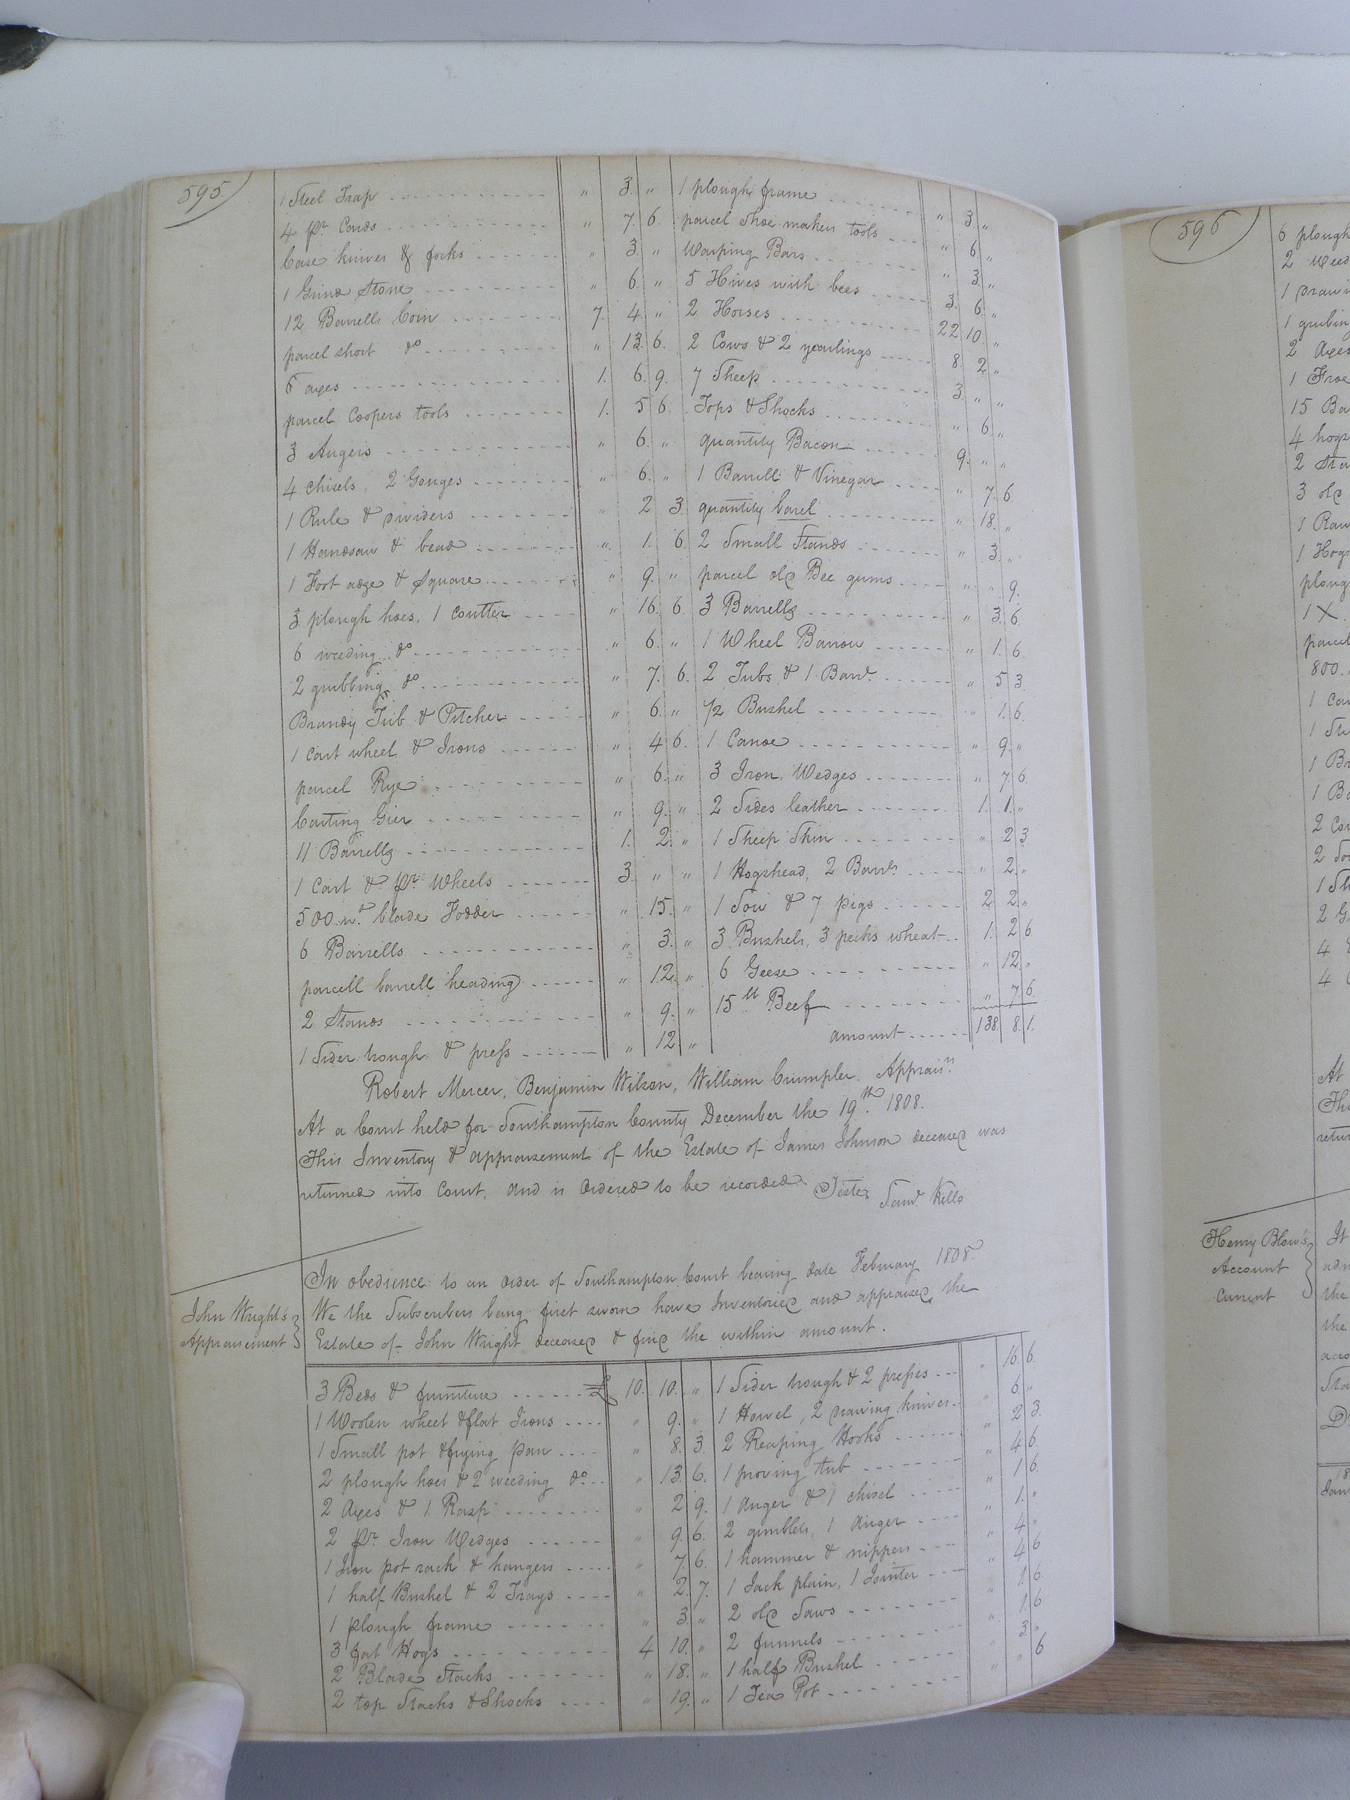 595
1 Steel Trap " 3. "
4 pr. Cards " 7. 6.
Case knives & forks " 3. "
1 Grind Stone " 6. "
12 Barrells Corn 7. 4. "
parcel short do " 13. 6.
6 axes 1. 6. 9.
parcel Coopers tools 1. 5 6.
3 Augers " 6. "
4 Chisels, 2 Gouges " 6. "
1 Rule & dividers " 2 3.
1 Handsaw & bead " 1. 6.
1 Foot adze & Square " 9. "
3 plough hoes, 1 coulter " 16. 6.
6 weeding do " 6. "
2 grubbing do " 7. 6.
Brandy Tub & Pitcher " 6. "
1 Cart wheel & Irons " 4 6.
parcel Rye " 6. "
Carting Gier " 9. "
11 Barrells 1. 2. "
1 Cart & pr. Wheels 3. " "
500 wt. blade Fodder " 15. "
6 Barrells " 3. "
parcell barrell heading " 12. "
2 Stands " 9. "
1 Sider trough & press " 12. "
1 plough frame " 3. "
parcel Shoe makers tools " 6. "
Warping Bars " 3. "
5 Hives with bees 3. 6. "
2 Horses 22 10. "
2 Cows & 2 yearlings 8. 2. "
7 Sheep 3. " "
Tops & Shocks " 6. "
quantity Bacon 9. " "
1 Barrell & Vinegar " 7. 6
quantity barel " 18. "
2 Small Stands " 3. "
parcel old Bee gums " " 9.
3 Barrells " 3. 6
1 Wheel Barrow " 1. 6.
2 Tubs & 1 Barl. " 5 3.
1/2 Bushel " 1. 6.
1 Canoe " 9. "
3 Iron Wedges " 7 6
2 Sides leather 1. 1. "
1 Sheep Skin " 2 3
1 Hogshead, 2 Barls. " 2. "
1 Sow & 7 pigs 2 2. "
3 Bushels, 3 pecks wheat 1. 2 6
6 Geese " 12. "
15 lb Beef " 7 6
amount 138. 8. 1.
Robert Mercer, Benjamin Wilson, William Crumpler. Apprairs.
At a Court held for Southampton County December the 19th. 1808.
This Inventory & appraisement of the Estate of James Johnson deceased was
returned into Court, and is Ordered to be recorded. Teste,
Saml. Kello
John Wright's
Appraisement
In obedience to an order of Southampton Court bearing date February 1808.
We the Subscribers being first sworn have Inventoried and appraised the
Estate of John Wright deceased & find the within amount.
3 Beds & furniture £ 10. 10. "
1 Woolen wheel & flat Irons " 9. "
1 Small pot & frying pan " 8. 3
2 plough hoes & 2 weeding do " 13. 6.
2 Axes & 1 Rasp " 2 9.
2 pr. Iron Wedges " 9. 6.
1 Iron pot rack & hangers " 7. 6.
1 half Bushel & 2 Trays " 2. 7.
1 plough frame " 3. "
3 fat Hogs 4 10. "
2 Blade Stacks " 18. "
2 top Stacks & Shocks " 19. "
1 Sider trough & 2 presses " 16. 6.
1 Howel, 2 drawing knives " 6. "
2 Reaping Hooks " 2 3.
1 proving tub " 4 6.
1 auger & 1 chisel " 1 6.
2 gimblets, 1 auger " 1. "
1 hammer & nippers " 4. "
1 Jack plain, 1 Jointer " 4 6
2 old Saws " 1. 6
2 funnels " 1. 6
1 half Bushel " 3. "
1 Tea Pot " " 6
596
6 plough
2 weed
1 drawi
1 grubing
2 Axes
1 Froe
15 Ba
4 hogs
2 Sta
3 old
1 Raw
1 Hogs
ploug
1 X.
parcel
800.
1 Car
1 Br
1 Ba
2 Cow
1 St
2 G
4
4
At
This
retur
Henry Blow's
Account
Current
It
adm
the
the
acco
Sta